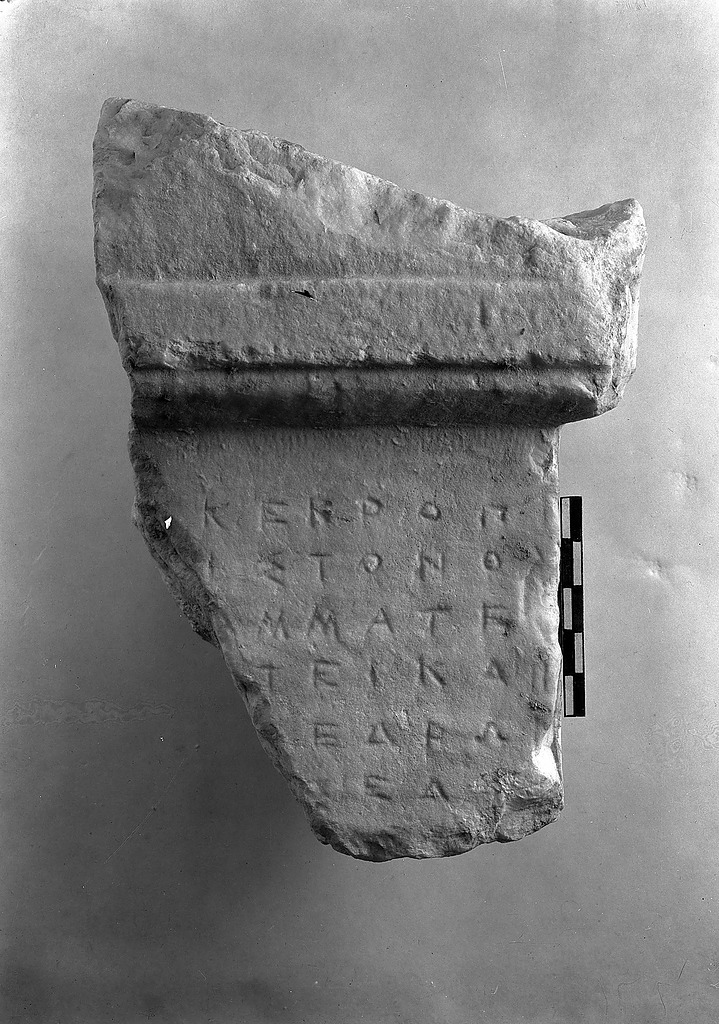 ΚΕΚΡΟΠ
ΙΣΤΟΝΟ
ΑΜΜΑΤΕ
ΤΕΙΚΑ
ΕΔΡΩ
ΕΔ